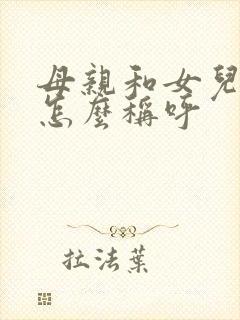 母親和女兒
怎麼稱呼
拉法葉